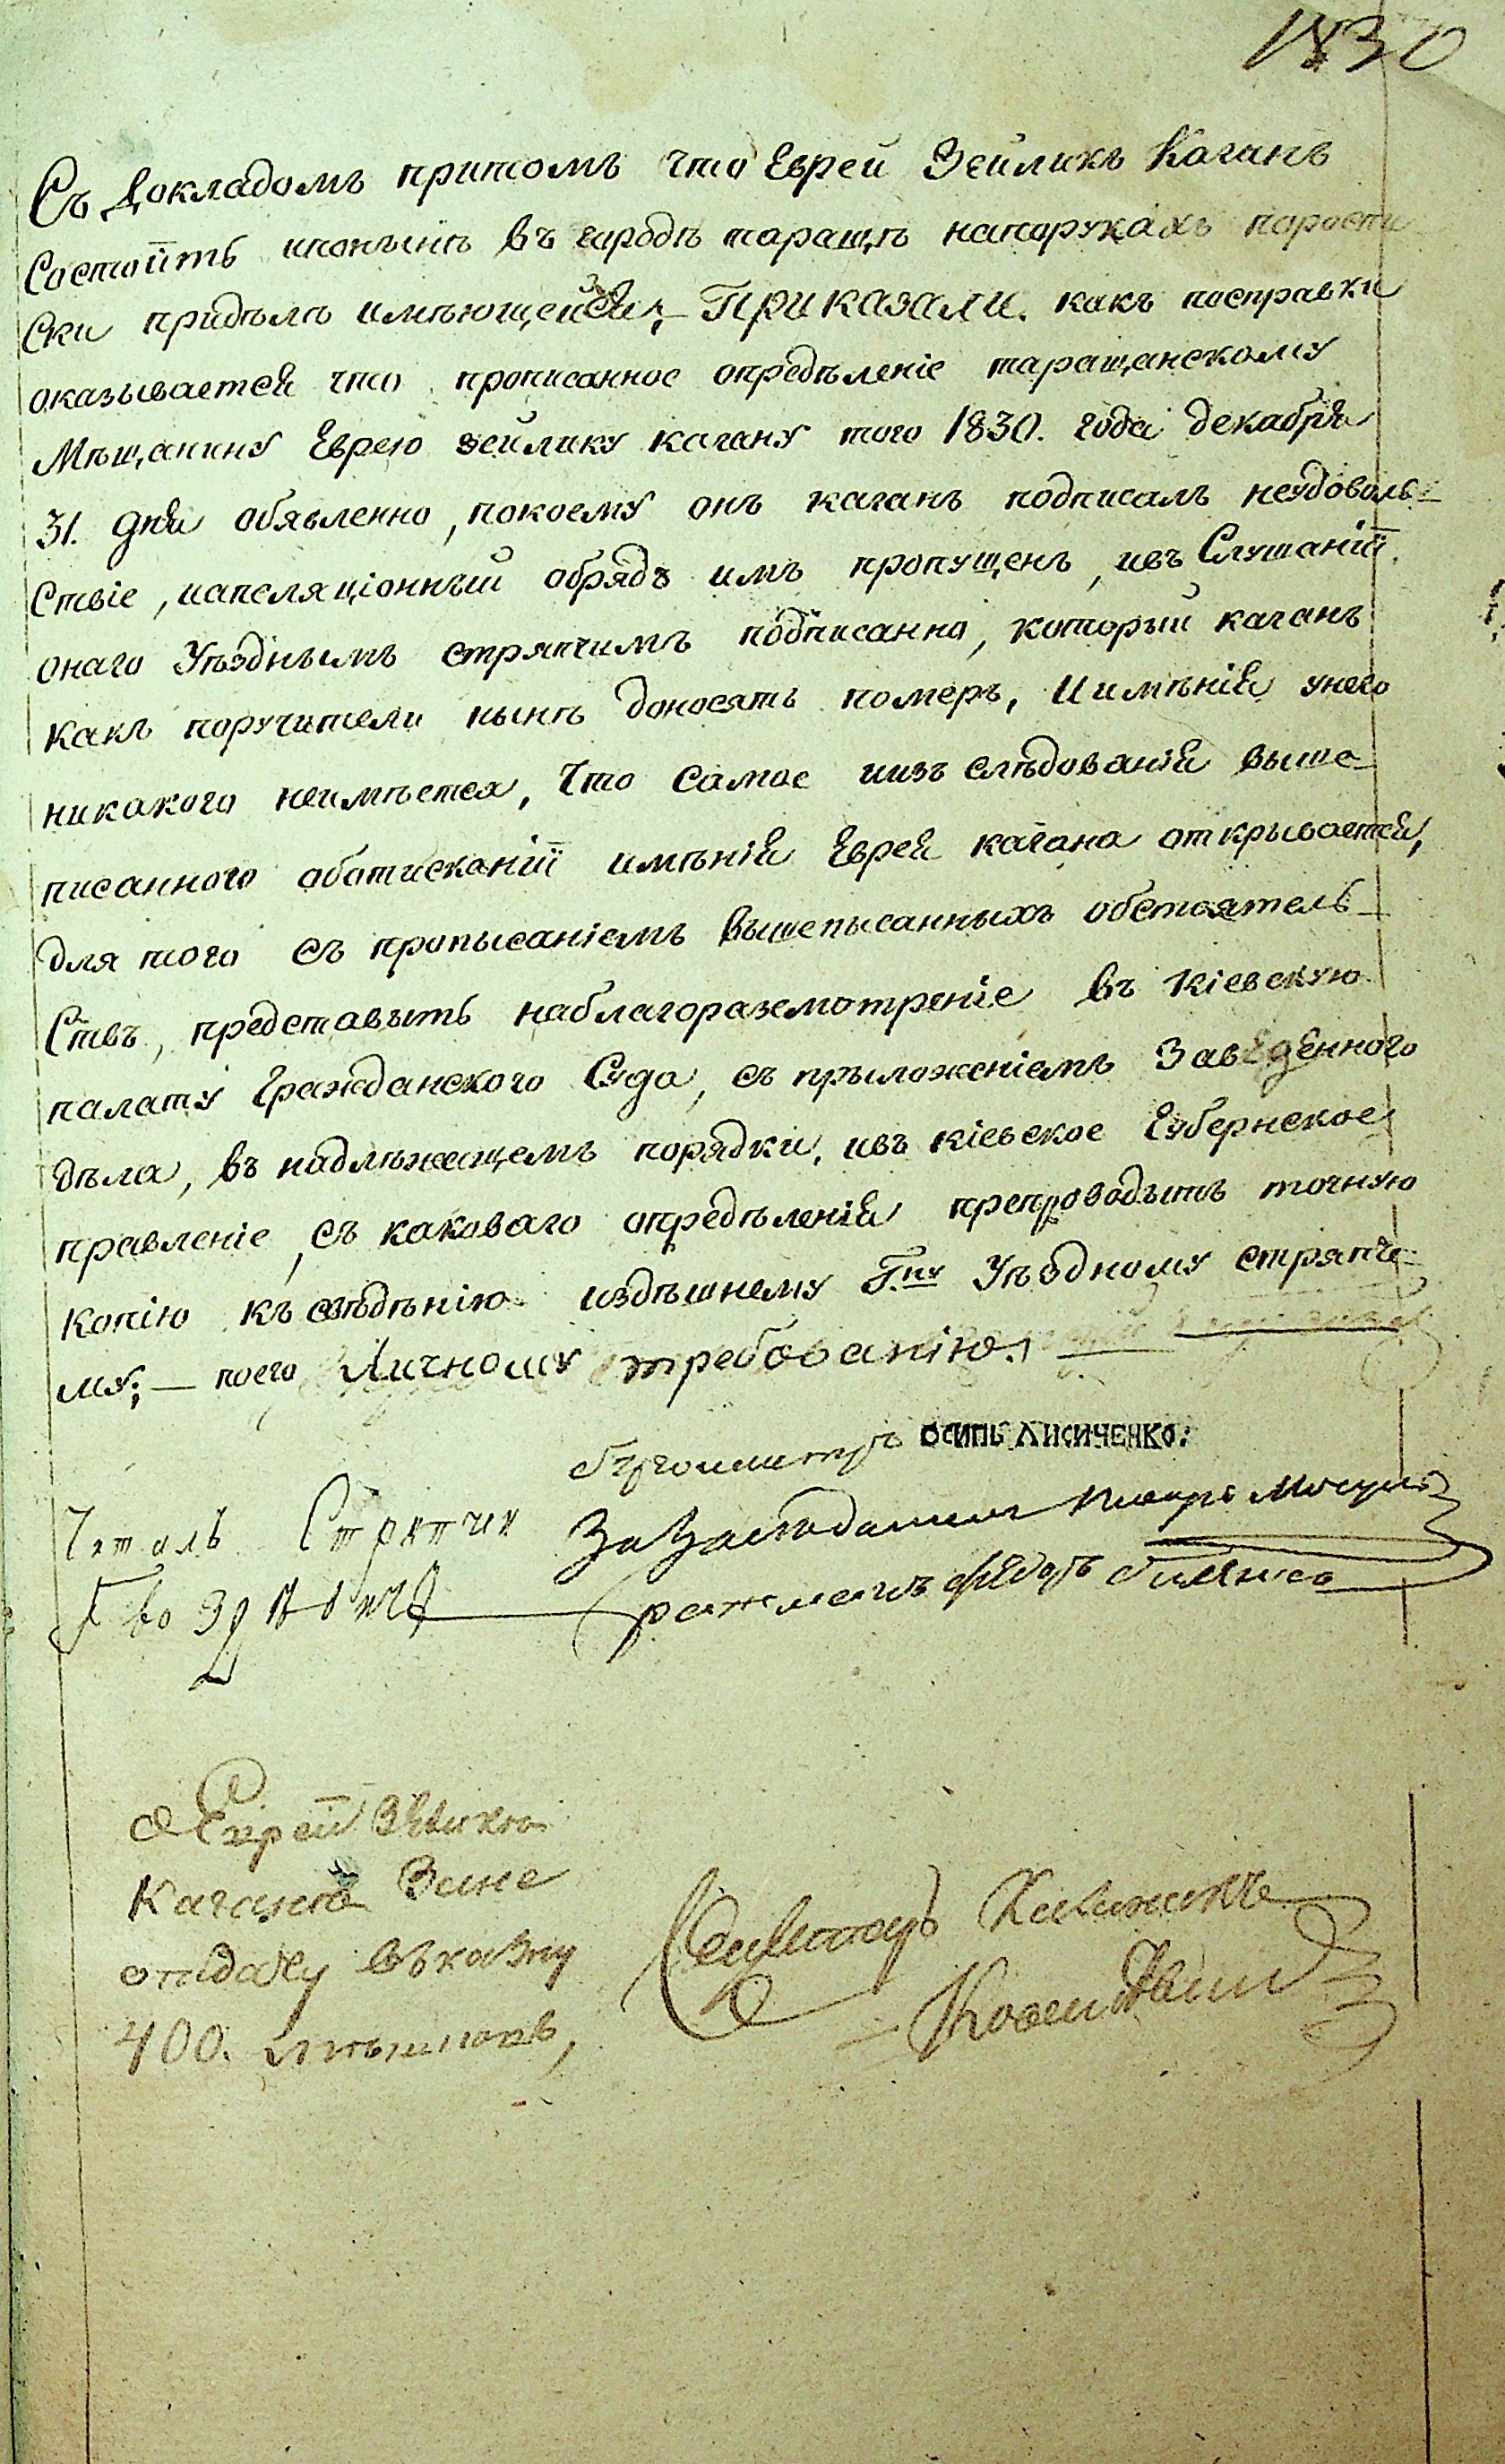 1830
Съ Докладомъ притомъ что Еврей Зейликъ Каганъ
Состоитъ ипонынѣ въ городѣ таращѣ напорукахъ порости
Ски придѣлѣ имѣющейся; – Приказали. какъ посправки
оказывается что прописанное опредѣленіе таращанскому
Мѣщанину Еврею зейлику кагану того 1830. года декабря
31. дня обявленно, покоему онъ каганъ подписалъ неудоволь-
Ствіе, иапеляціонный обрядъ имъ пропущенъ, ивъ Слушаніи
онаго Уѣзднымъ стряпчимъ подписанно, который каганъ
какъ поручители нынѣ доносятъ померъ, И имѣнія унего
никакого неимѣется, Что самое иизъ слѣдованія выше-
писанного оботисканіи имѣнія Еврея кагана открывается,
для того съ прописаніемъ вышеписанныхъ обстоятель-
Ствъ, представыть наблагоразсмотреніе въ Кіевскую
палату Гражданского Суда, съ прыложеніемъ Заведенного
дѣла, въ надлѣжащемъ порядки, ивъ кіевское Губернское
правленіе, съ каковаго опредѣленія препроводыть точную
копію къ свѣдѣнію издѣшнему Г.ну Уѣздному стряпче-
му; – поего Личному требованію.
осипъ лисиченко:
Читалъ Стряпчи
За Заседателя
ратманъ
Еврей
Кагана
отдачу въ казну
400.